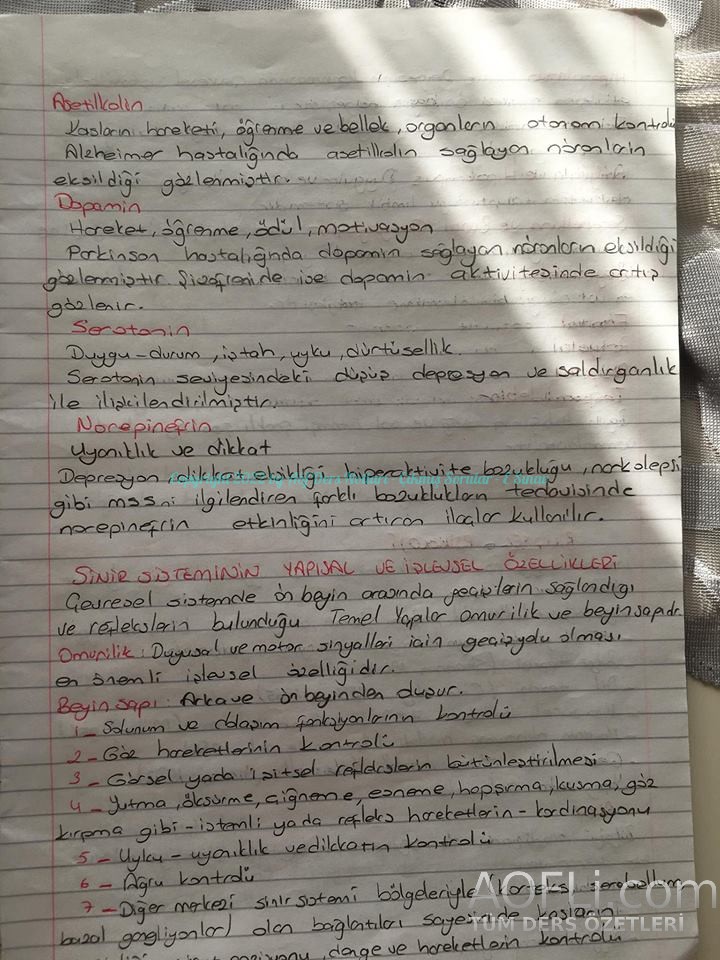 Asetilkolin
Kasların hareketi, öğrenme ve bellek, organların otonomi kontrolü
Alzheimer hastalığında asetilkolin sağlayan nöronların
eksildiği gözlenmiştir.
Dopamin
Hareket, öğrenme, ödül, motivasyon
Parkinson hastalığında dopamin sağlayan nöronların eksildiği
gözlenmiştir. Şizofrenide ise dopamin aktivitesinde artış
gözlenir.
Serotonin
Duygu-durum, iştah, uyku, dürtüsellik.
Serotonin seviyesindeki düşüş depresyon ve saldırganlık
ile ilişkilendirilmiştir.
Norepinefrin
Uyanıklık ve dikkat
Depresyon, dikkat eksikliği hiperaktivite bozukluğu, narkolepsi
gibi mssni ilgilendiren farklı bozuklukların tedavisinde
norepinefrin etkinliğini artıran ilaçlar kullanılır.
SİNİR SİSTEMİNİN YAPISAL VE İŞLEVSEL ÖZELLİKLERİ
Çevresel sistemde ön beyin arasında geçişlerin sağlandığı
ve reflekslerin bulunduğu Temel Yapılar omurilik ve beyin sapıdır
Omurilik: Duyusal ve motor sinyalleri için geçiş yolu olması
en önemli işlevsel özelliğidir.
Beyin sapı: Arka ve ön beyinden oluşur.
1- Solunum ve dolaşım fonksiyonlarının kontrolü
2- Göz hareketlerinin kontrolü
3- Görsel yada işitsel reflekslerin bütünleştirilmesi
4- Yutma, öksürme, çiğneme, esneme, hapşırma, kusma, göz
kırpma gibi - istemli ya da refleks hareketlerin - kordinasyonu
5- Uyku - uyanıklık ve dikkatin kontrolü
6- Ağrı kontrolü
7- Diğer merkezi sinir sistemi bölgeleriyle (korteks, serebellum
bazal gangliyonlar) olan bağlantıları sayesinde kasların
denge ve hareketlerin kontrolü
AOFLi.com
TÜM DERS ÖZETLERİ